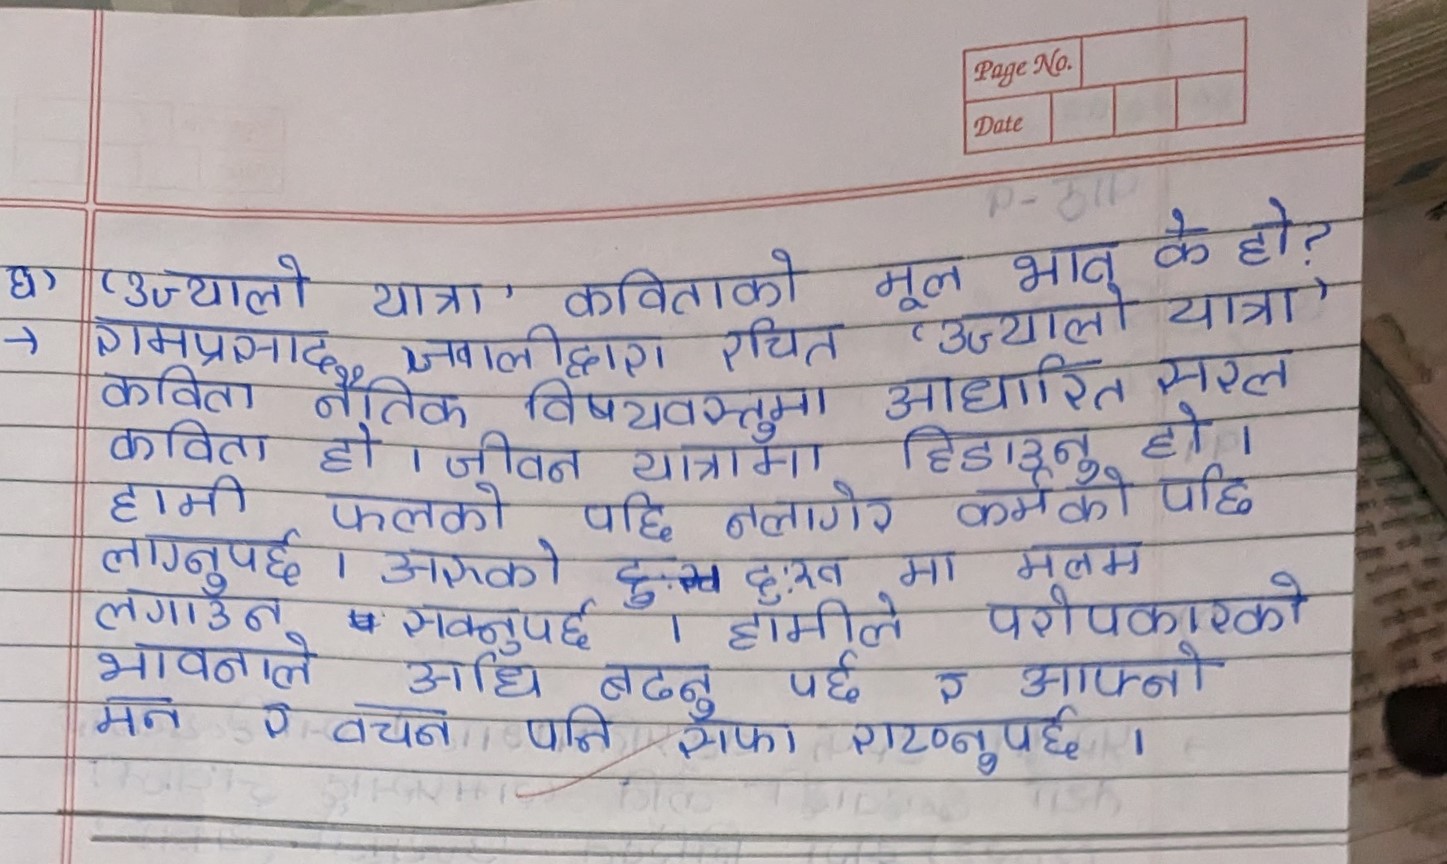 Page No.
Date
घ) 'उज्यालो यात्रा' कविताको मूल भाव के हो?
→ रामप्रसाद ज्ञवालीद्वारा रचित 'उज्यालो यात्रा'
कविता नैतिक विषयवस्तुमा आधारित सरल
कविता हो । जीवन यात्रामा हिडाउनु हो ।
हामी फलको पछि नलागेर कर्मको पछि
लाग्नुपर्छ । अरुको दुःख मा मलम
लगाउन सक्नुपर्छ । हामीले परोपकारको
भावनाले अघि बढ्नु पर्छ र आफ्नो
मन र वचन पनि सफा राख्नुपर्छ ।